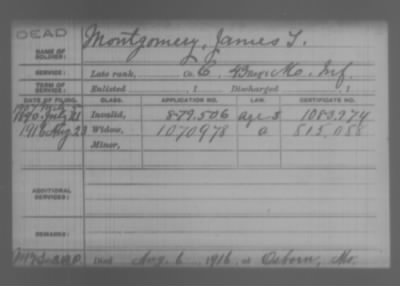 DEAD
NAME OF SOLDIER: Montgomery, James T.
SERVICE: Late rank, Co. E, 43 Reg't Mo. Inf.
TERM OF SERVICE: Enlisted , 1 Discharged , 1
DATE OF FILING. CLASS. APPLICATION NO. LAW. CERTIFICATE NO.
1890 July 28 Invalid, 879.506 age 3 1083.974
1916 Aug 23 Widow, 1070978 a 815,088
Minor,
ADDITIONAL SERVICES:
REMARKS:
Died Aug. 6, 1916, at Osborn, Mo.